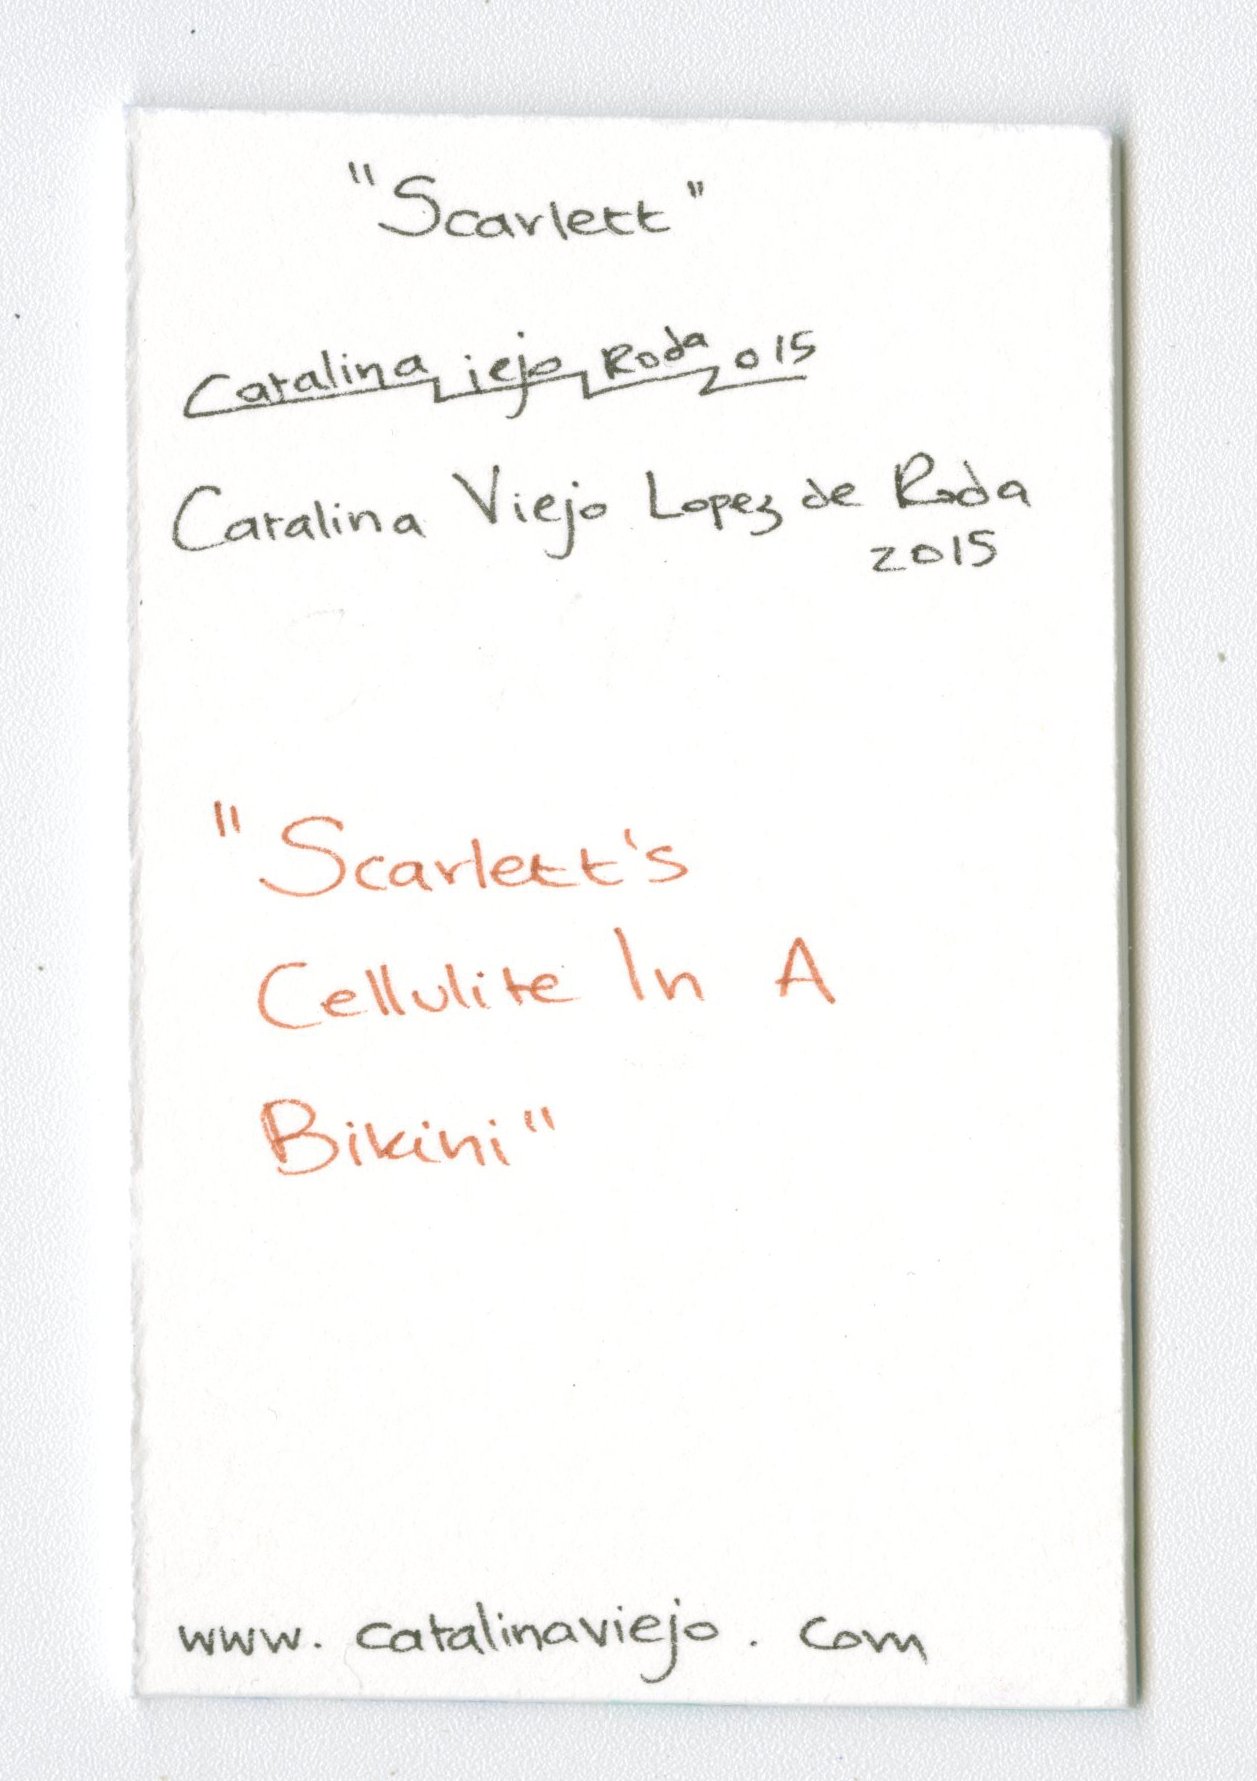 "Scarlett"
Catalina Viejo Roda 2015
Catalina Viejo Lopez de Roda
2015
"Scarlett's
Cellulite In A
Bikini"
www. catalinaviejo . com